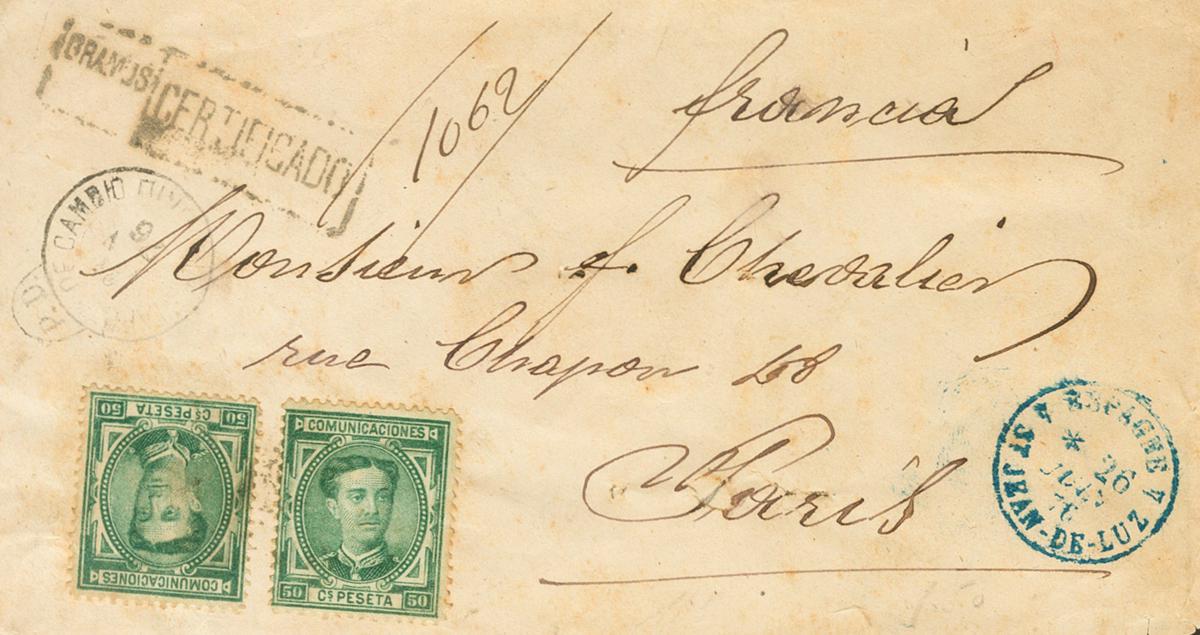 GRAMOS CERTIFICADO
1062
francia
DE CAMBIO
9
P.D.
Monsieur J. Chevalier
rue Chapon 48
Paris
50 Cs PESETA 50
COMUNICACIONES
COMUNICACIONES
50 Cs PESETA 50
ESPAGNE
* 26
76
ST JEAN-DE-LUZ